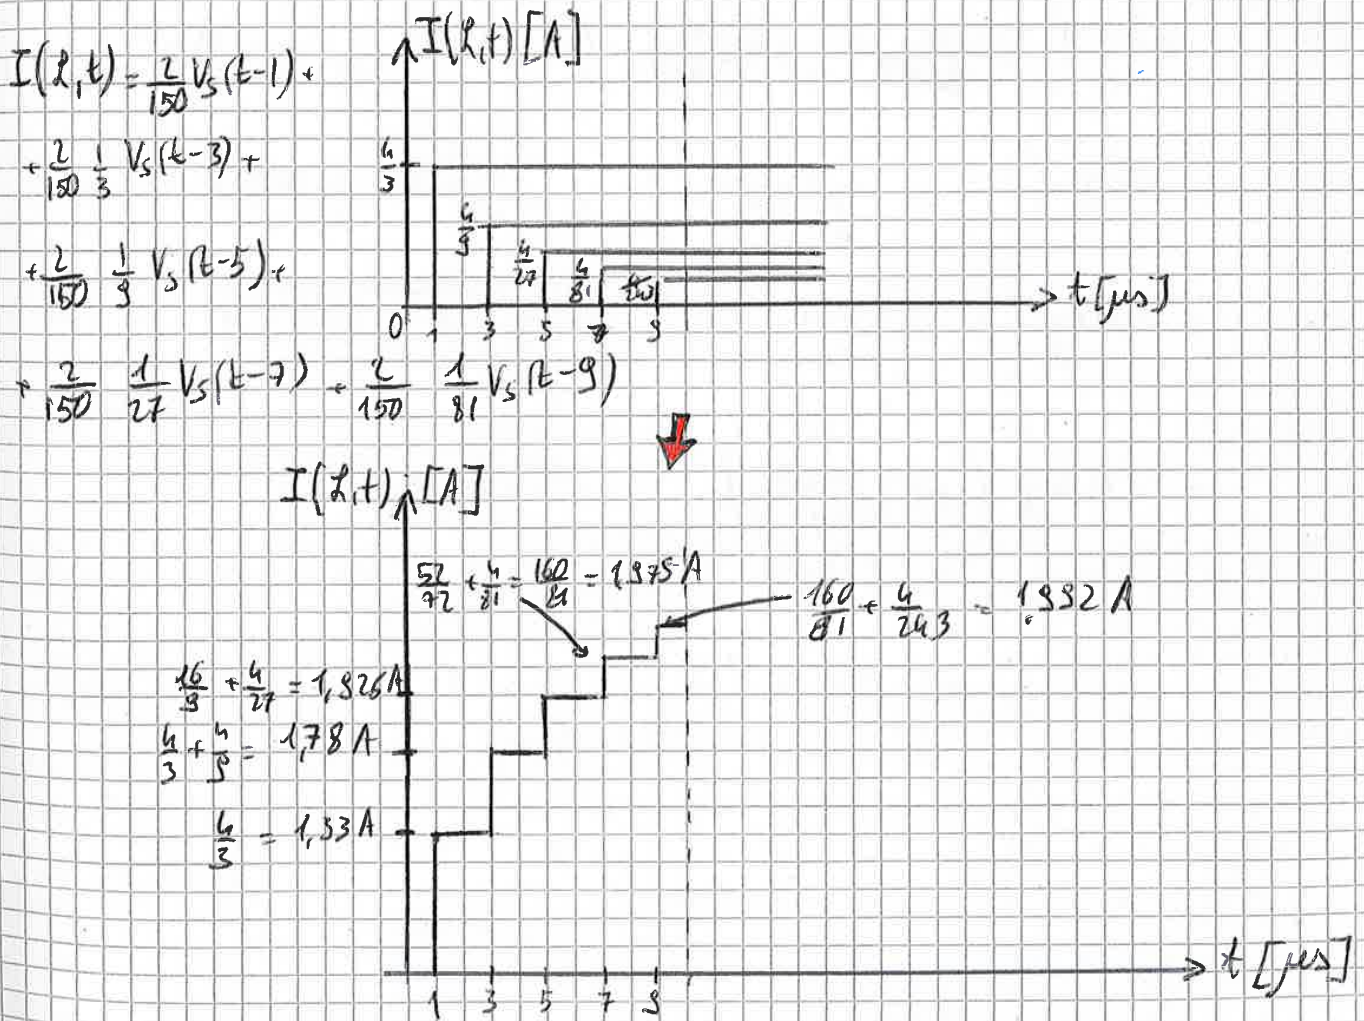 I(ℒ,t) = 2/150 Vs(t-1) +
+ 2/150 1/3 Vs(t-3) +
+ 2/150 1/9 Vs(t-5) +
+ 2/150 1/27 Vs(t-7) + 2/150 1/81 Vs(t-9)
I(ℒ,t) [A]
4/3
4/9
4/27
4/81
4/243
0 1 3 5 7 9
t [μs]
I(ℒ,t) [A]
52/72 + 4/81 = 160/81 = 1,975 A
160/81 + 4/243 = 1,992 A
16/9 + 4/27 = 1,926 A
4/3 + 4/9 = 1,78 A
4/3 = 1,33 A
1 3 5 7 9
t [μs]